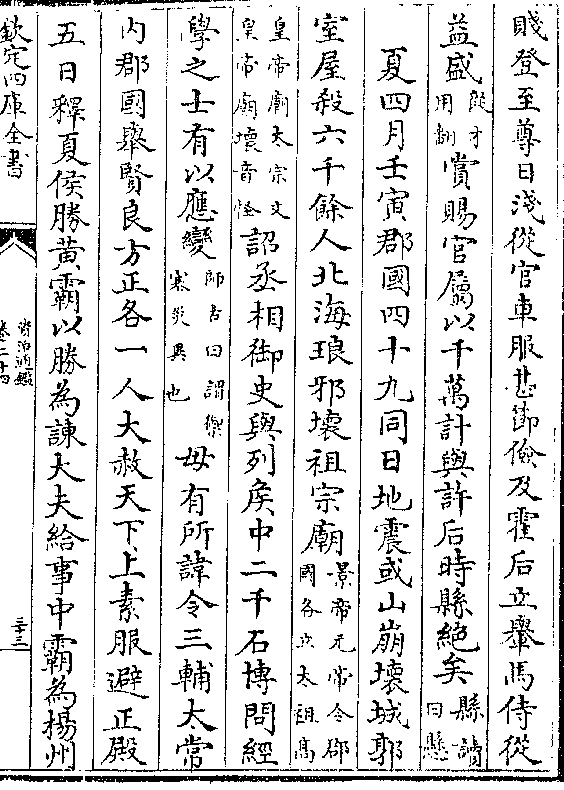 賤登至尊日淺從官車服甚節儉及霍后立轝馬侍從
益盛從才用翻賞賜官屬以千萬計與許后時縣絕矣縣讀曰懸
夏四月壬寅郡國四十九同日地震或山崩壞城郭
室屋殺六千餘人北海琅邪壞祖宗廟景帝元帝令郡國各立太祖高
皇帝廟太宗文皇帝廟壞音怪詔丞相御史與列矦中二千石博問經
學之士有以應變師古曰謂禦塞災異也毋有所諱令三輔大常
內郡國舉賢良方正各一人大赦天下上素服避正殿
五日釋夏侯勝黃霸以勝為諫大夫給事中霸為揚州
欽定四庫全書
資治通鑑
卷二十四
三十三